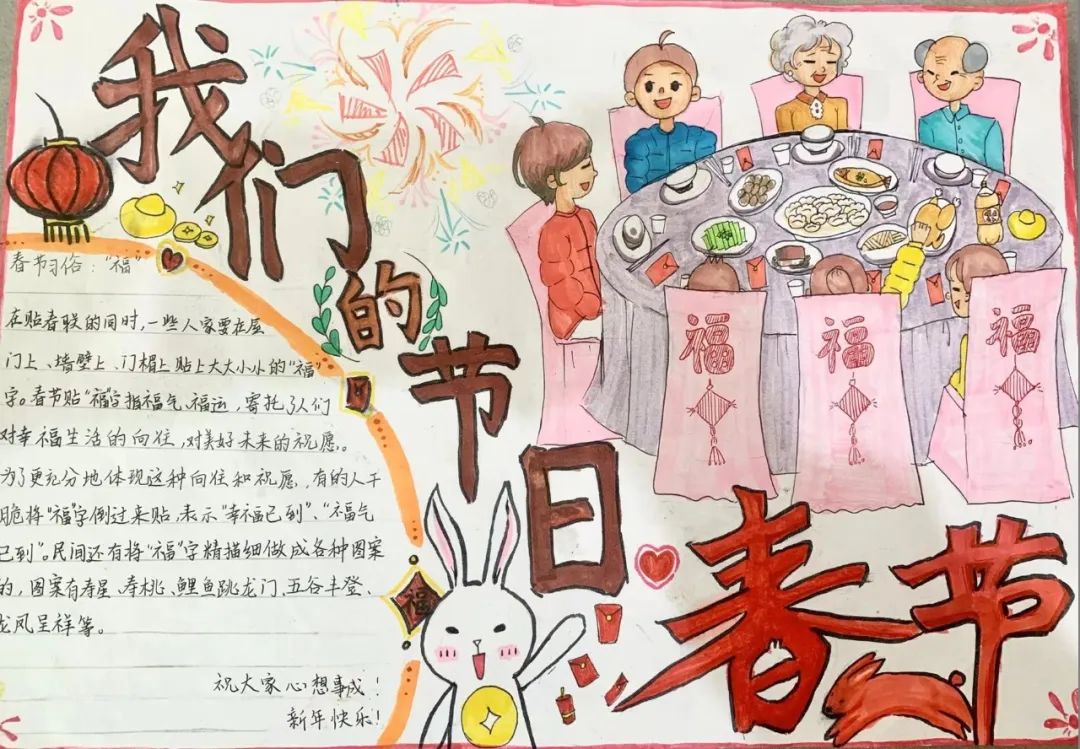 我们的节日
春节
春节习俗：“福”
在贴春联的同时，一些人家要在屋
门上、墙壁上、门楣上贴上大大小小的“福”
字。春节贴“福”字指福气、福运，寄托了人们
对幸福生活的向往，对美好未来的祝愿。
为了更充分地体现这种向往和祝愿，有的人干
脆将“福”字倒过来贴，表示“幸福已到”、“福气
已到”。民间还有将“福”字精描细做成各种图案
的，图案有寿星、寿桃、鲤鱼跳龙门、五谷丰登、
龙凤呈祥等。
祝大家心想事成！
新年快乐！
福
福
福
福